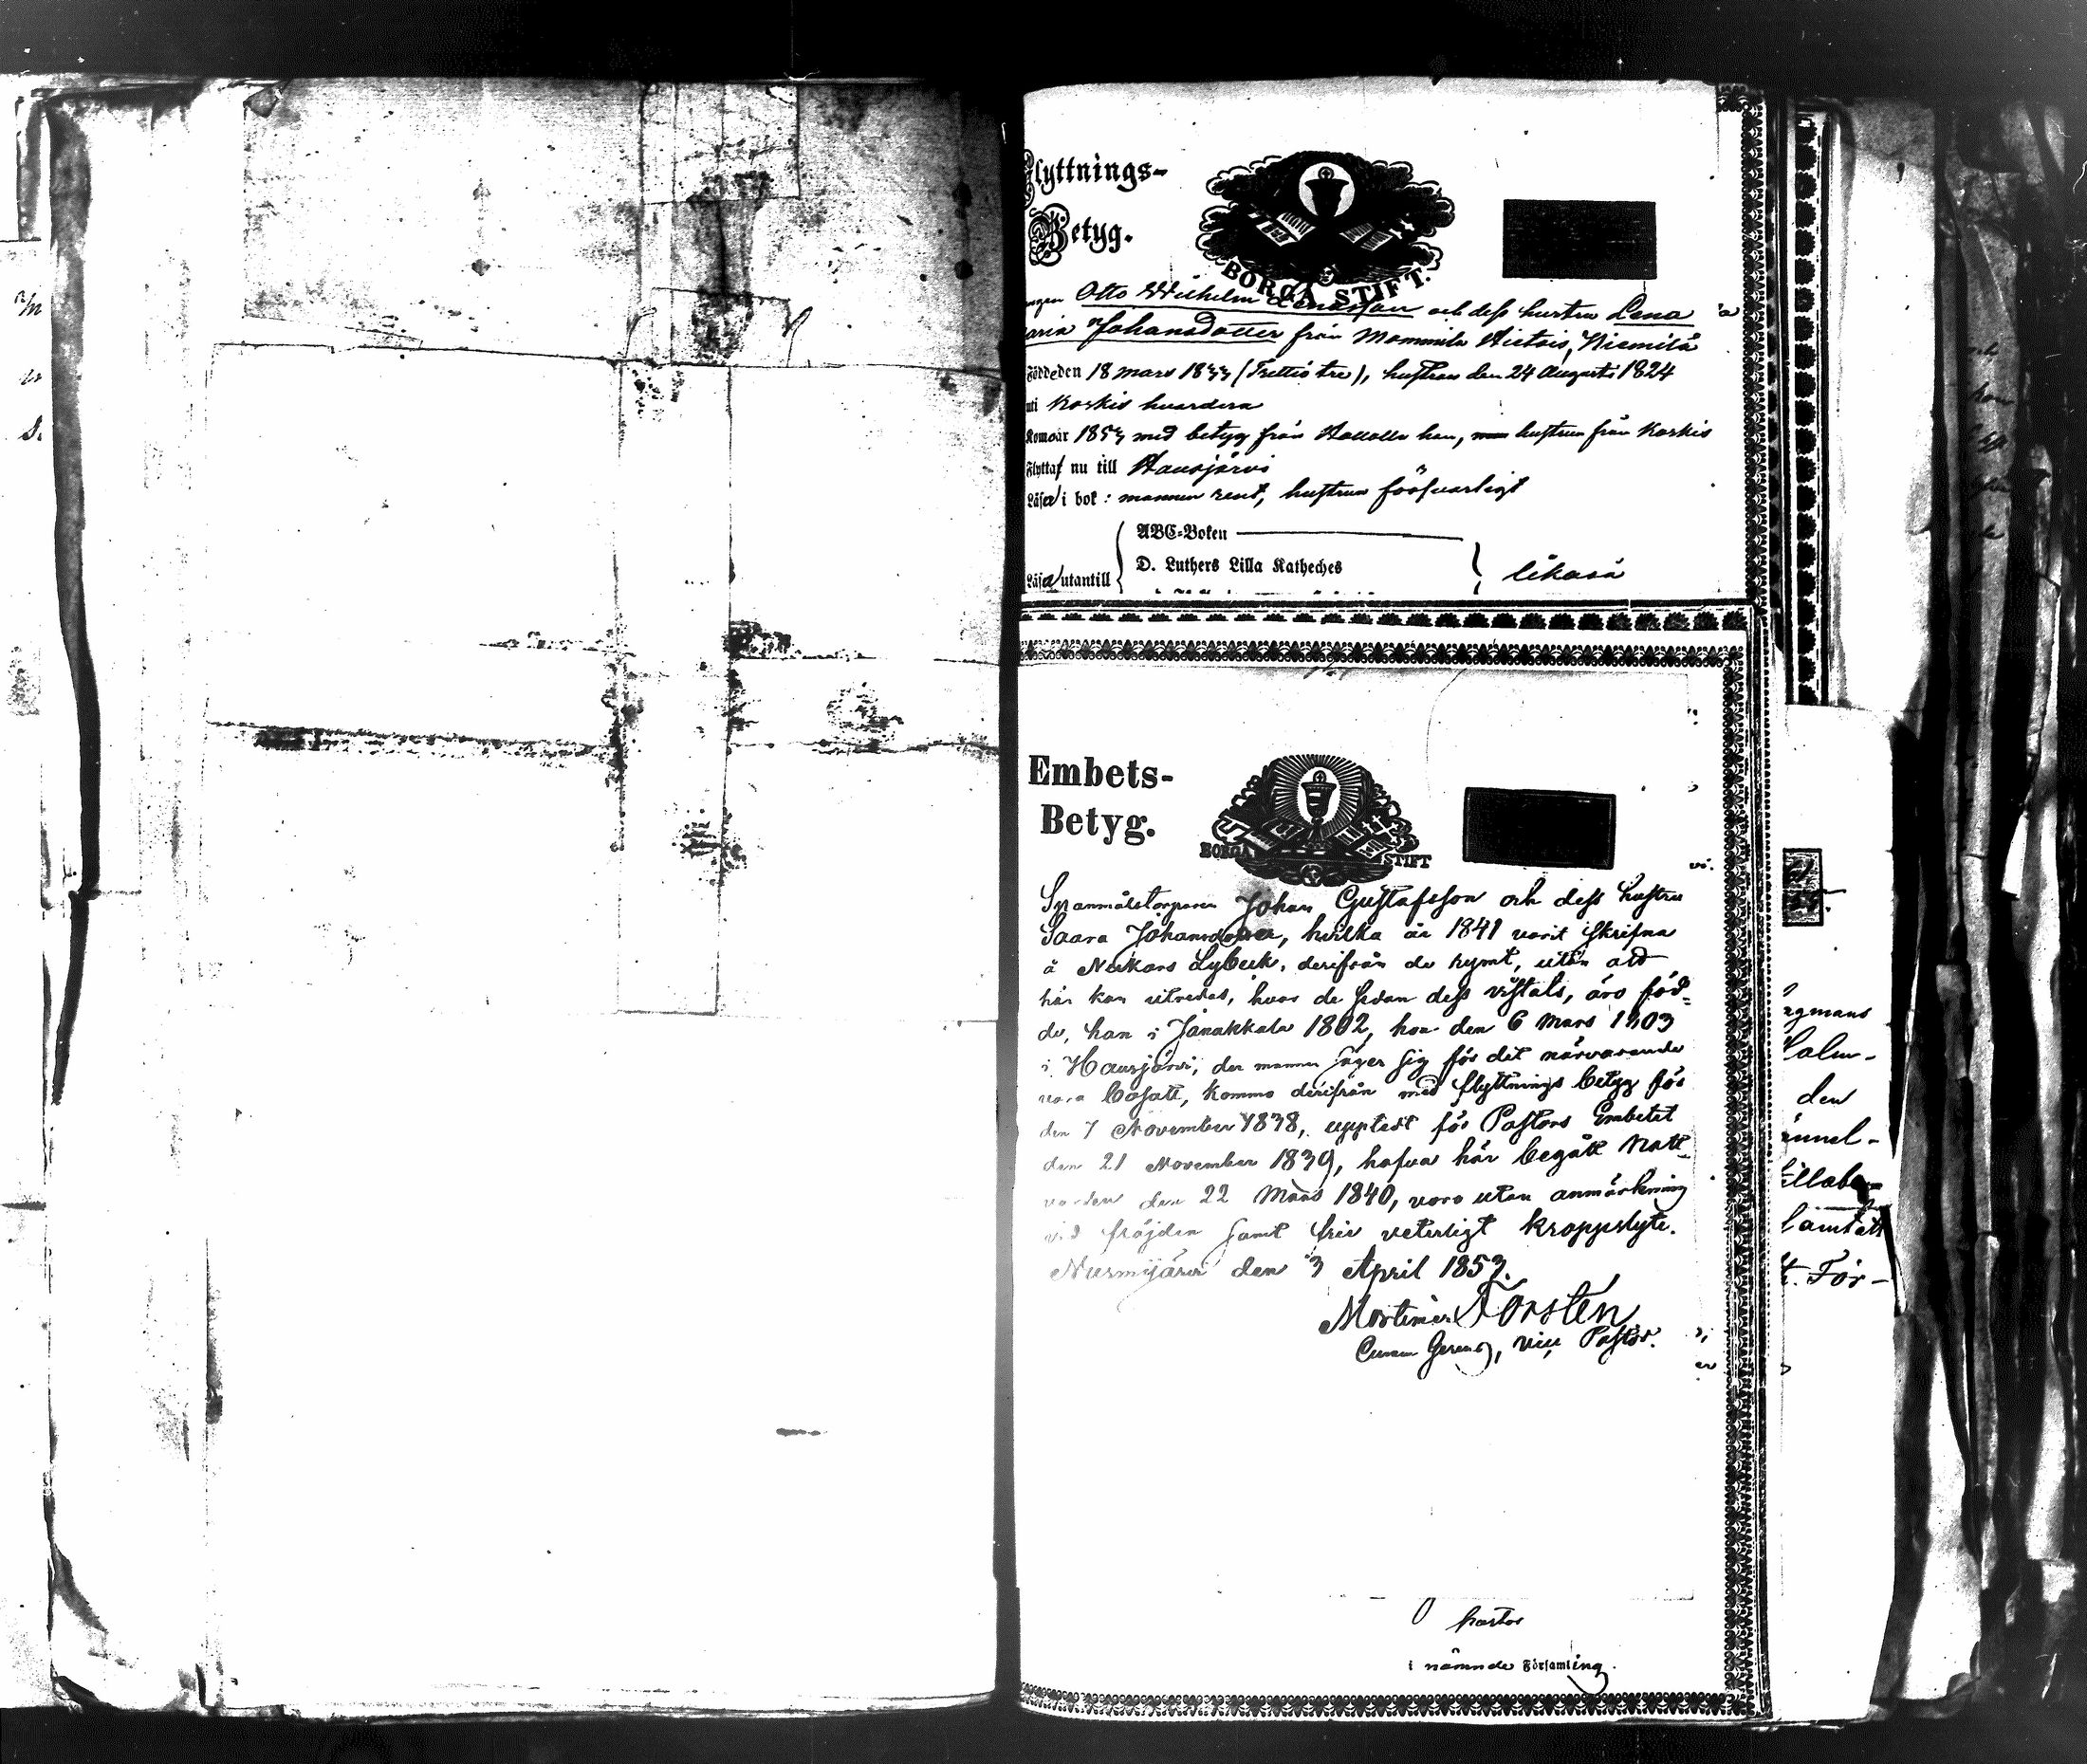 Flyttnings-
Betyg.
BORGÅ STIFT.
Otto Wilhelm och dess hustru Lena
Johansdotter från Mommila Hietois, Niemilä
Född eden 18 mars 1833 (Trettio tre), hustrun den 24 Augusti 1824
uti Koskis hvardera
Kom år 1853 med betyg från Hollola han, hustrun från Koskis
Flytta nu till Hausjärvi
Läser i bok: mannen rent, hustrun försvarligt
ABC-Boken
D. Luthers Lilla Katheches
Läsa utantill
likaså
Embets-
Betyg.
BORGÅ STIFT
Johan Gustafsson och dess hustru
Saara Johansdotter, hvilka år 1841 varit skrifna
å Nukars Lybeck, derifrån de rymt, utan att
här kan utredas, hvar de sedan dess vistats, äro föd-
de, han i Janakkala 1802, hon den 6 Mars 1803
i Hausjärvi, der mannen säger sig för det närvarande
vara bosatt, kommo derifrån med flyttnings betyg för
den 7 November 1838, upptedt för Pastors Embetet
den 21 November 1839, hafva här begått Natt-
varden den 22 Mars 1840, voro utan anmärkning
vid fräjden samt fria veterligt kroppslyte.
Nurmijärvi den 3 April 1853.
Mortimer Forstén
Curam Gerens, vice Pastor.
pastor
i nämnde Församling.
ngmans
den
t. För-